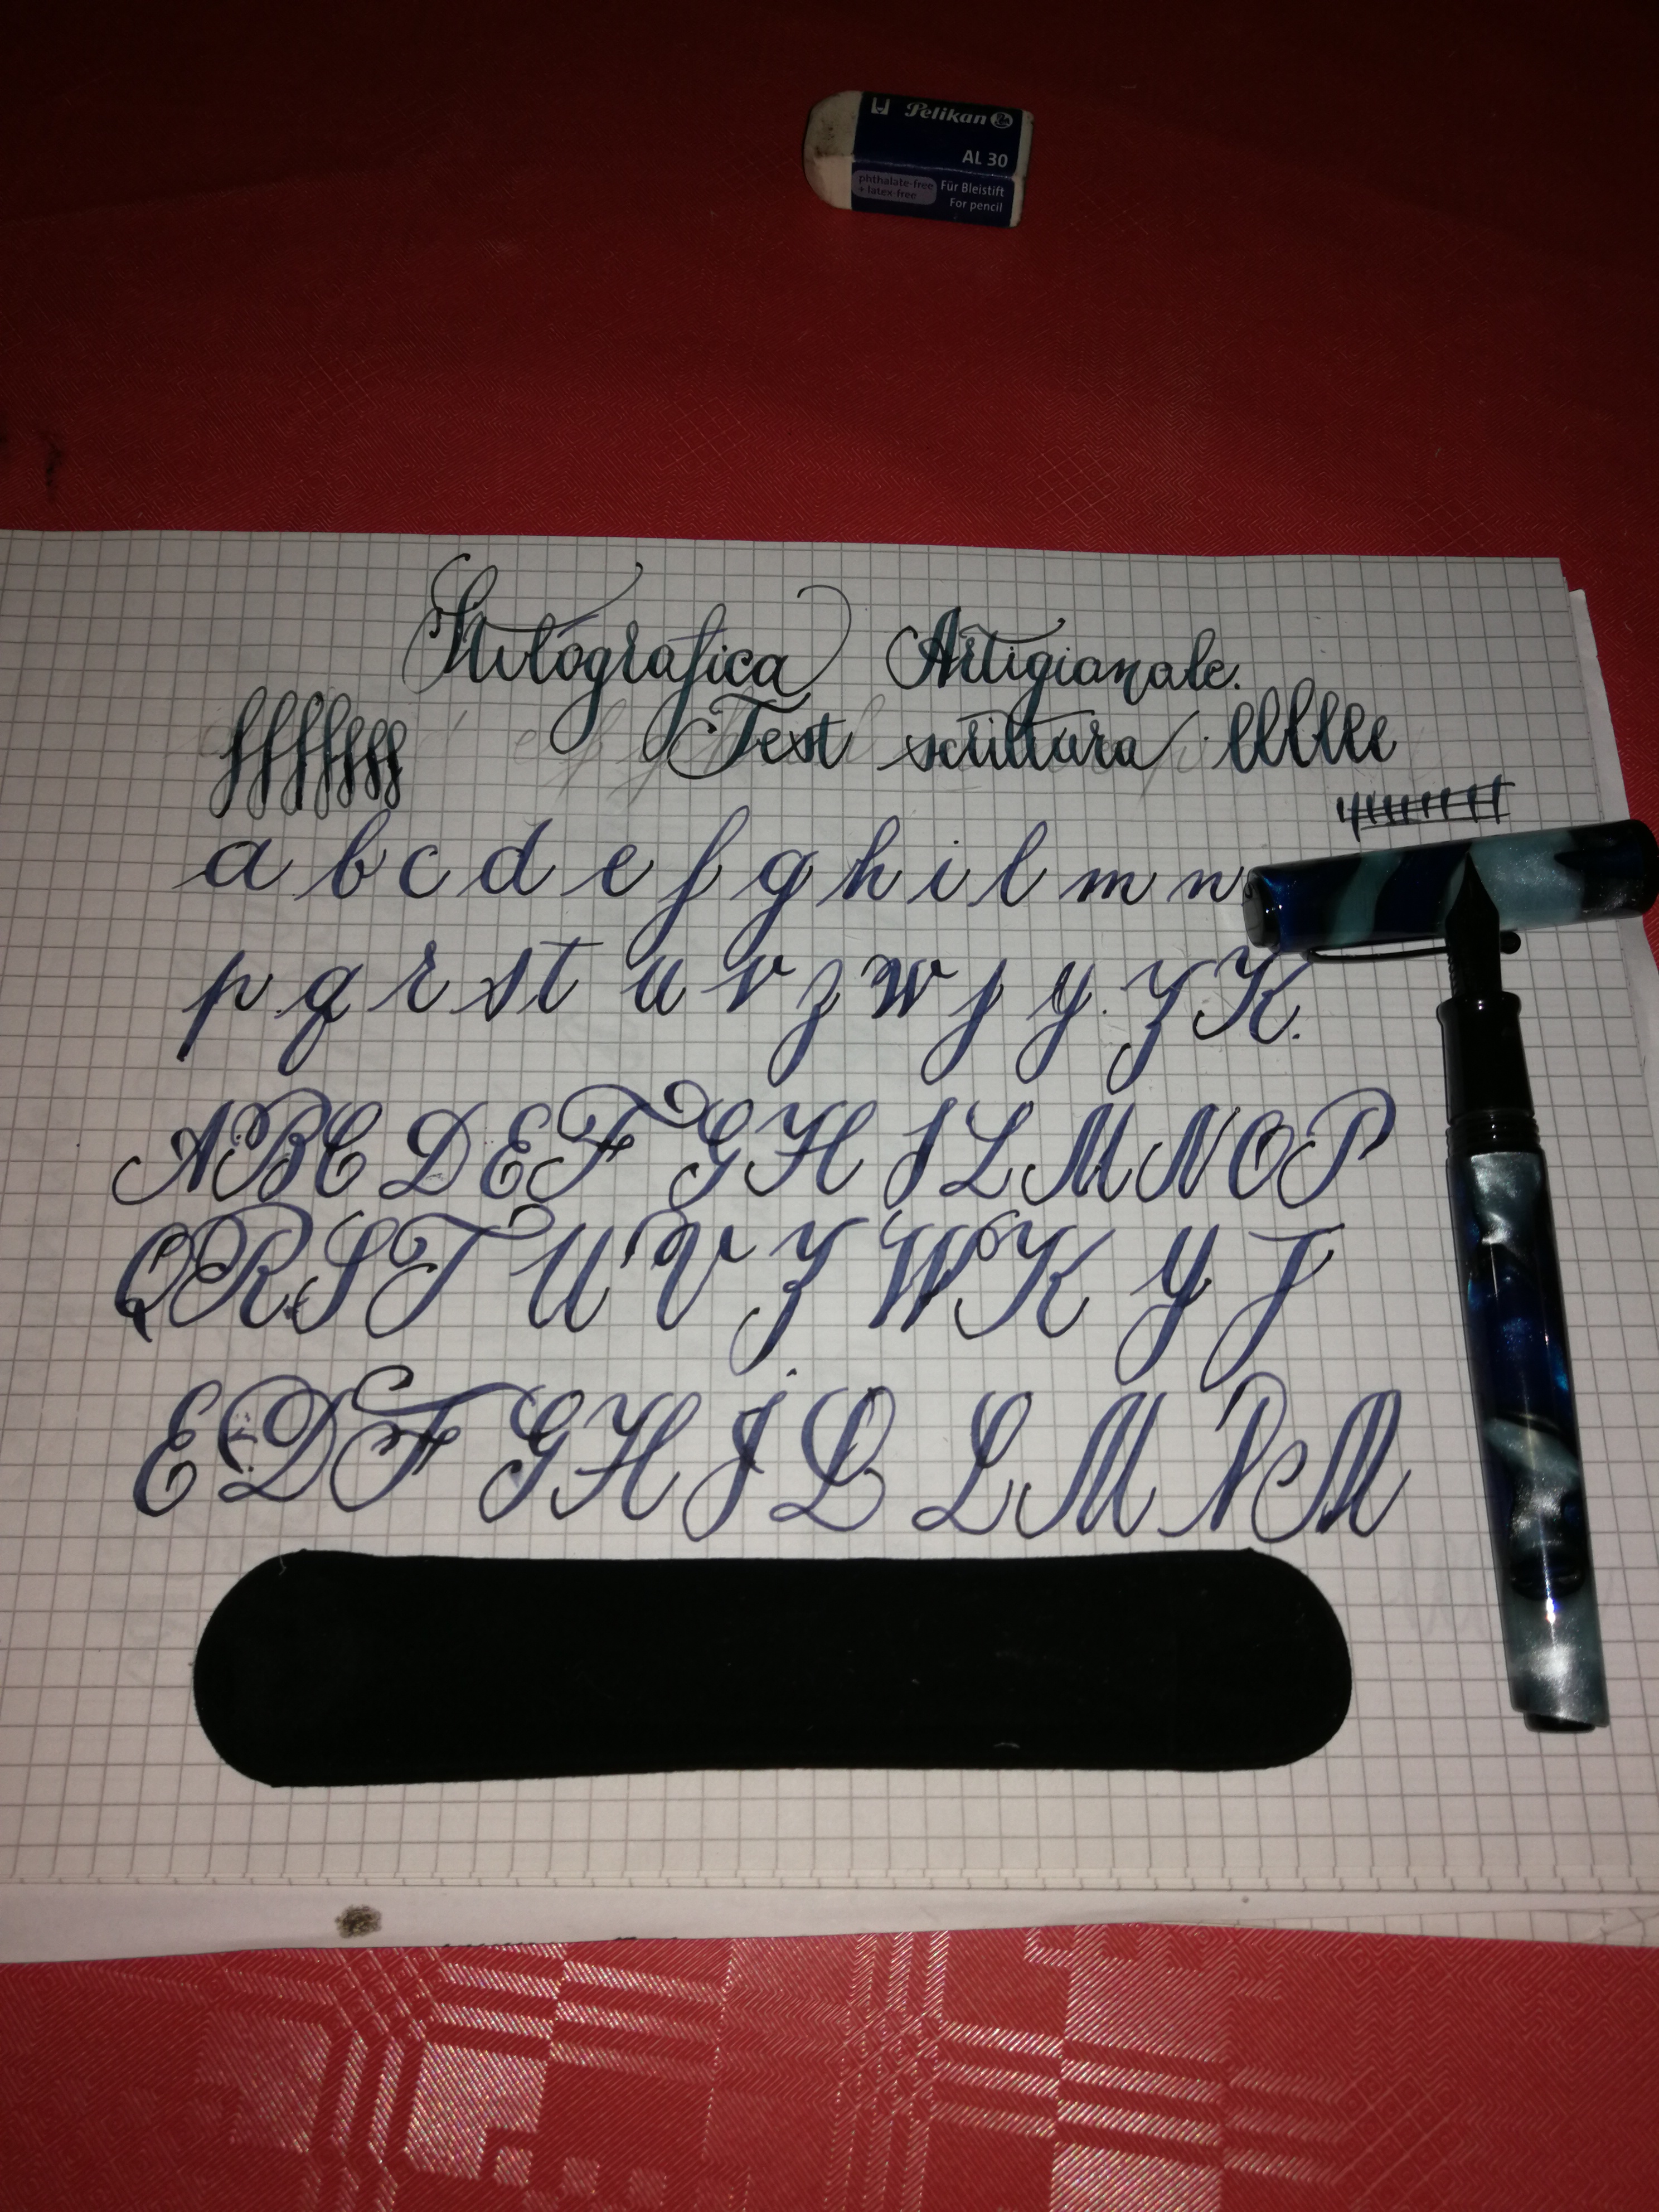 Pelikan
AL 30
phthalate-free
+ latex-free
Für Bleistift
For pencil
Stilografica Artigianale.
Test scrittura
a b c d e f g h i l m n
p q r s t u v z w j y. Z K.
A B C D E F G H I L M N O P
Q R S T U V Z W K Y J
E D F G H J L L M N M